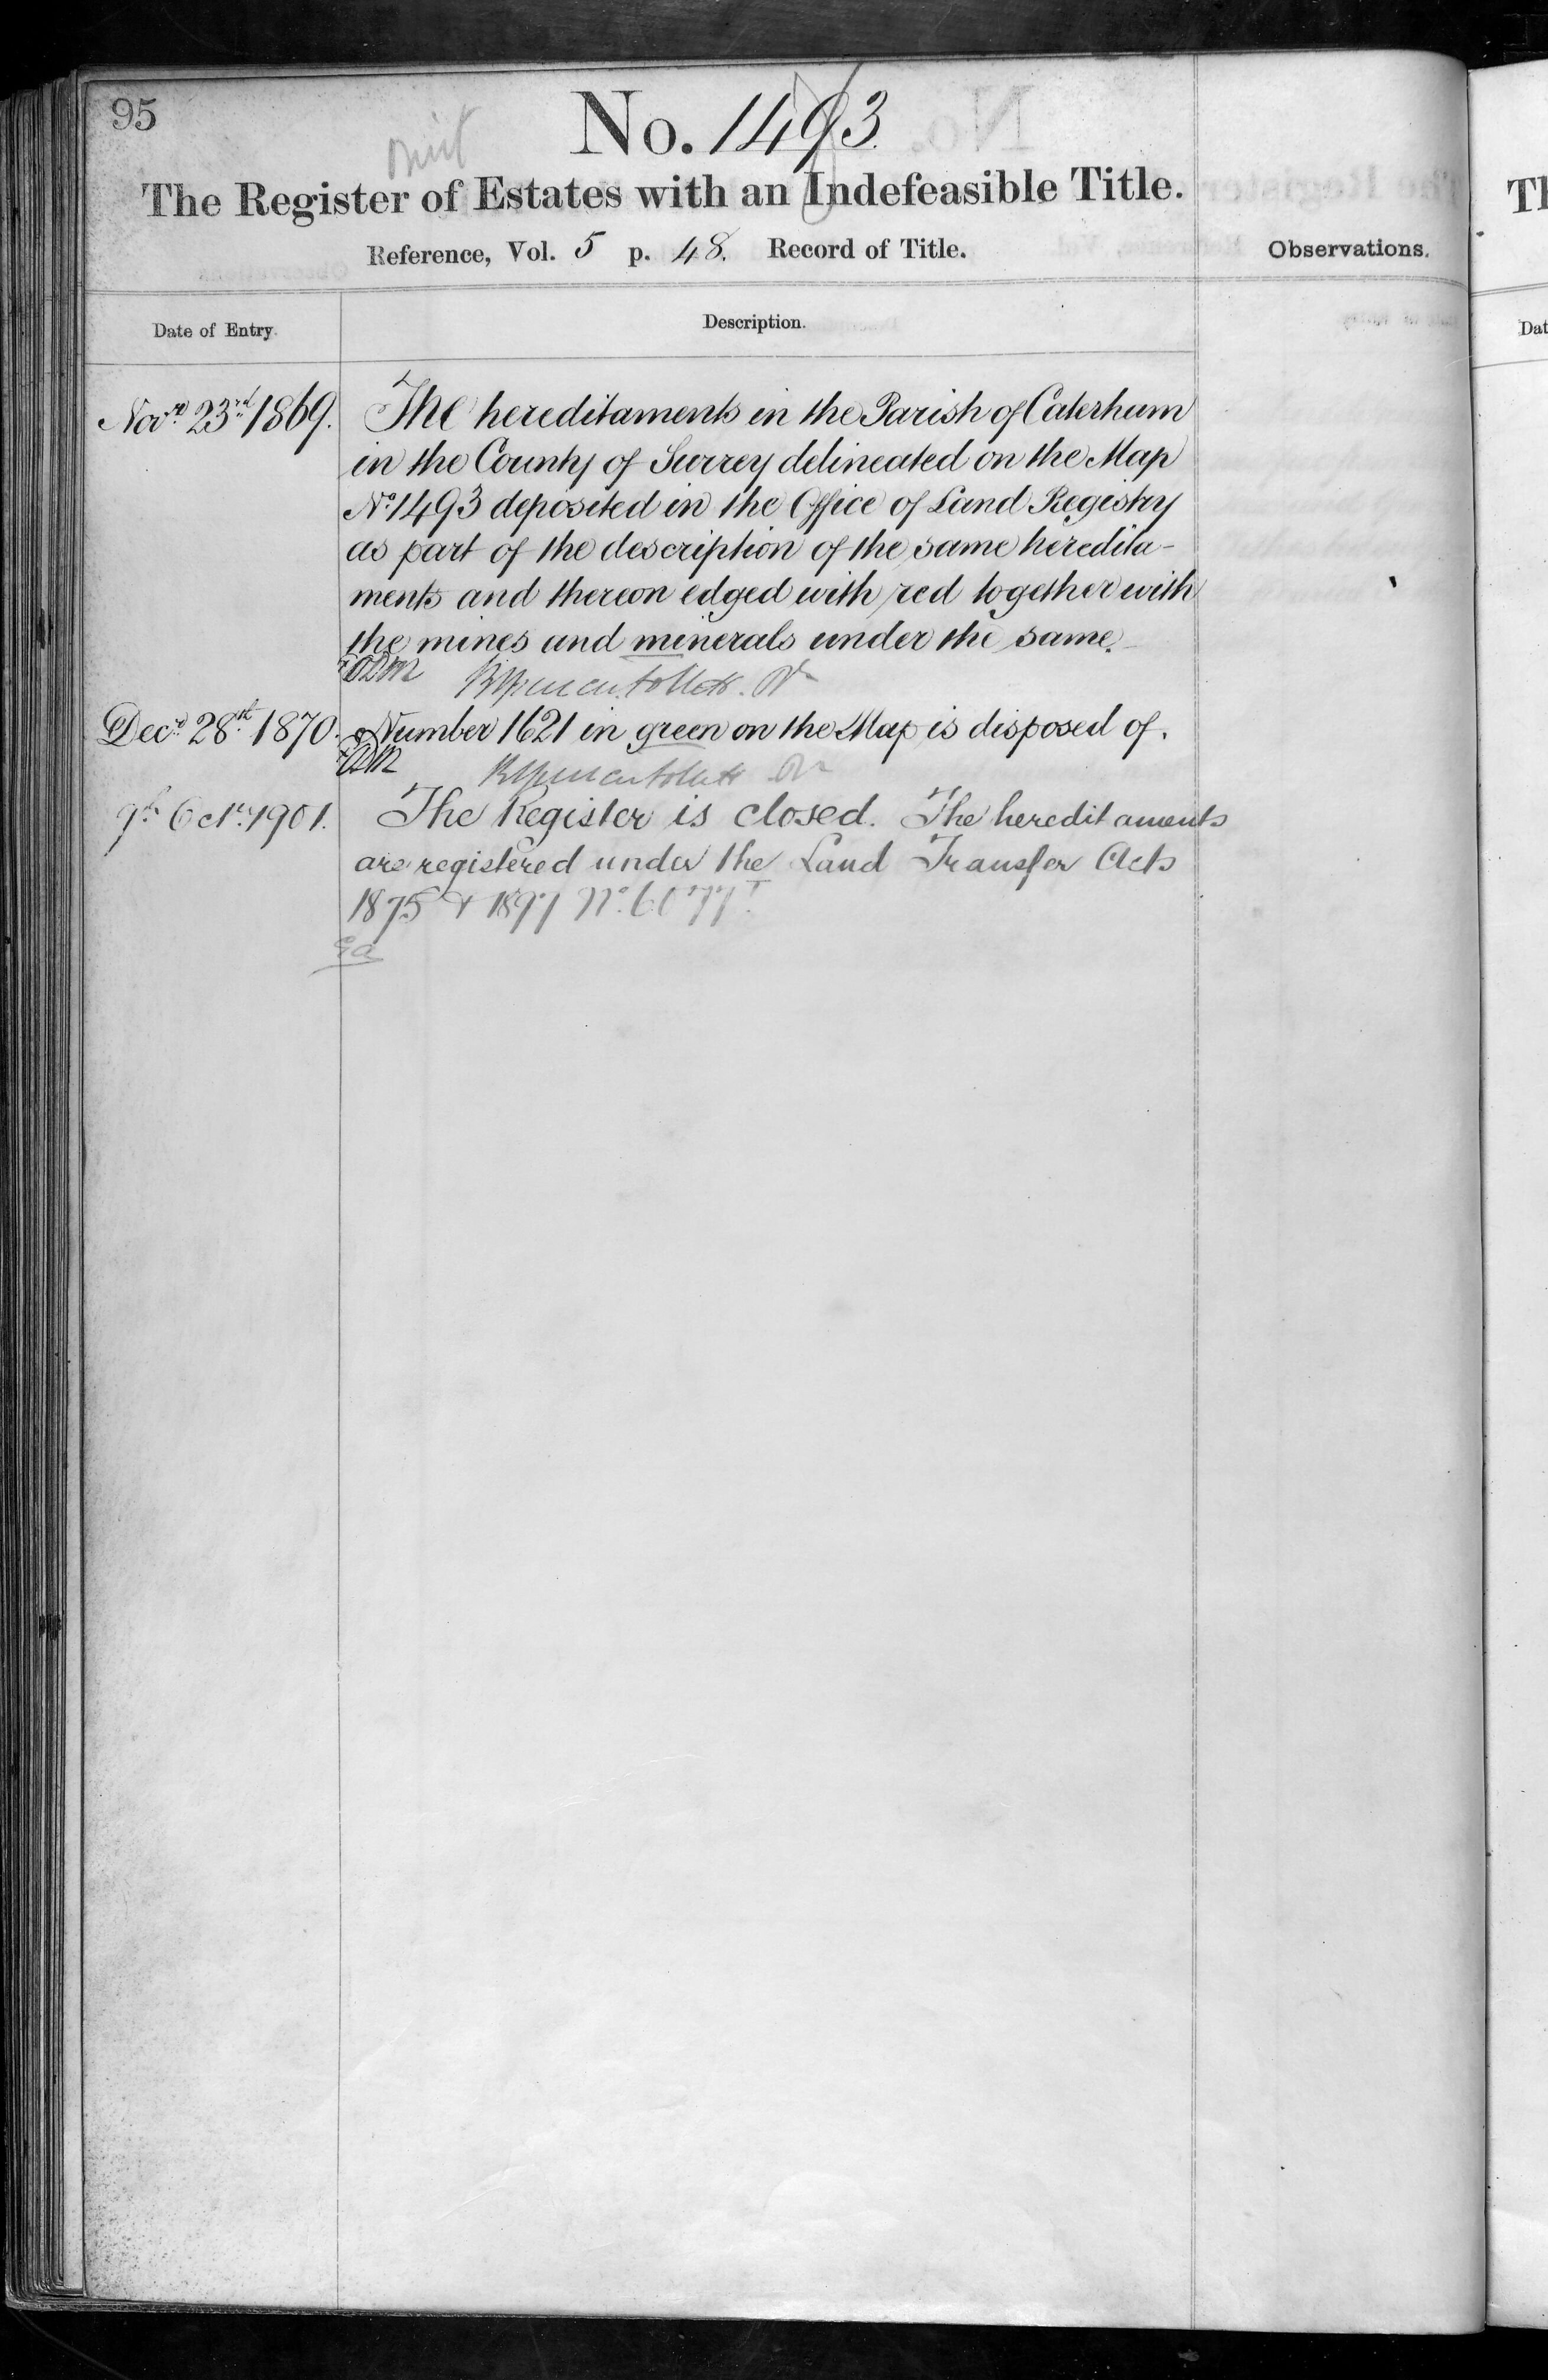 95
No. 1493.
The Register of Estates with an Indefeasible Title.
Reference, Vol. 5 p. 48. Record of Title.
Observations.
Date of Entry.
Description.
Novr. 23rd 1869.
The hereditaments in the Parish of Caterham
in the County of Surrey delineated on the Map
No. 1493 deposited in the Office of Land Registry
as part of the description of the same heredita-
ments and thereon edged with red together with
the mines and minerals under the same.
Decr. 28th 1870.
Number 1621 in green on the Map is disposed of.
9th Octr. 1901.
The Register is closed. The hereditaments
are registered under the Land Transfer Acts
1875 & 1897 No. 6077.
Dat